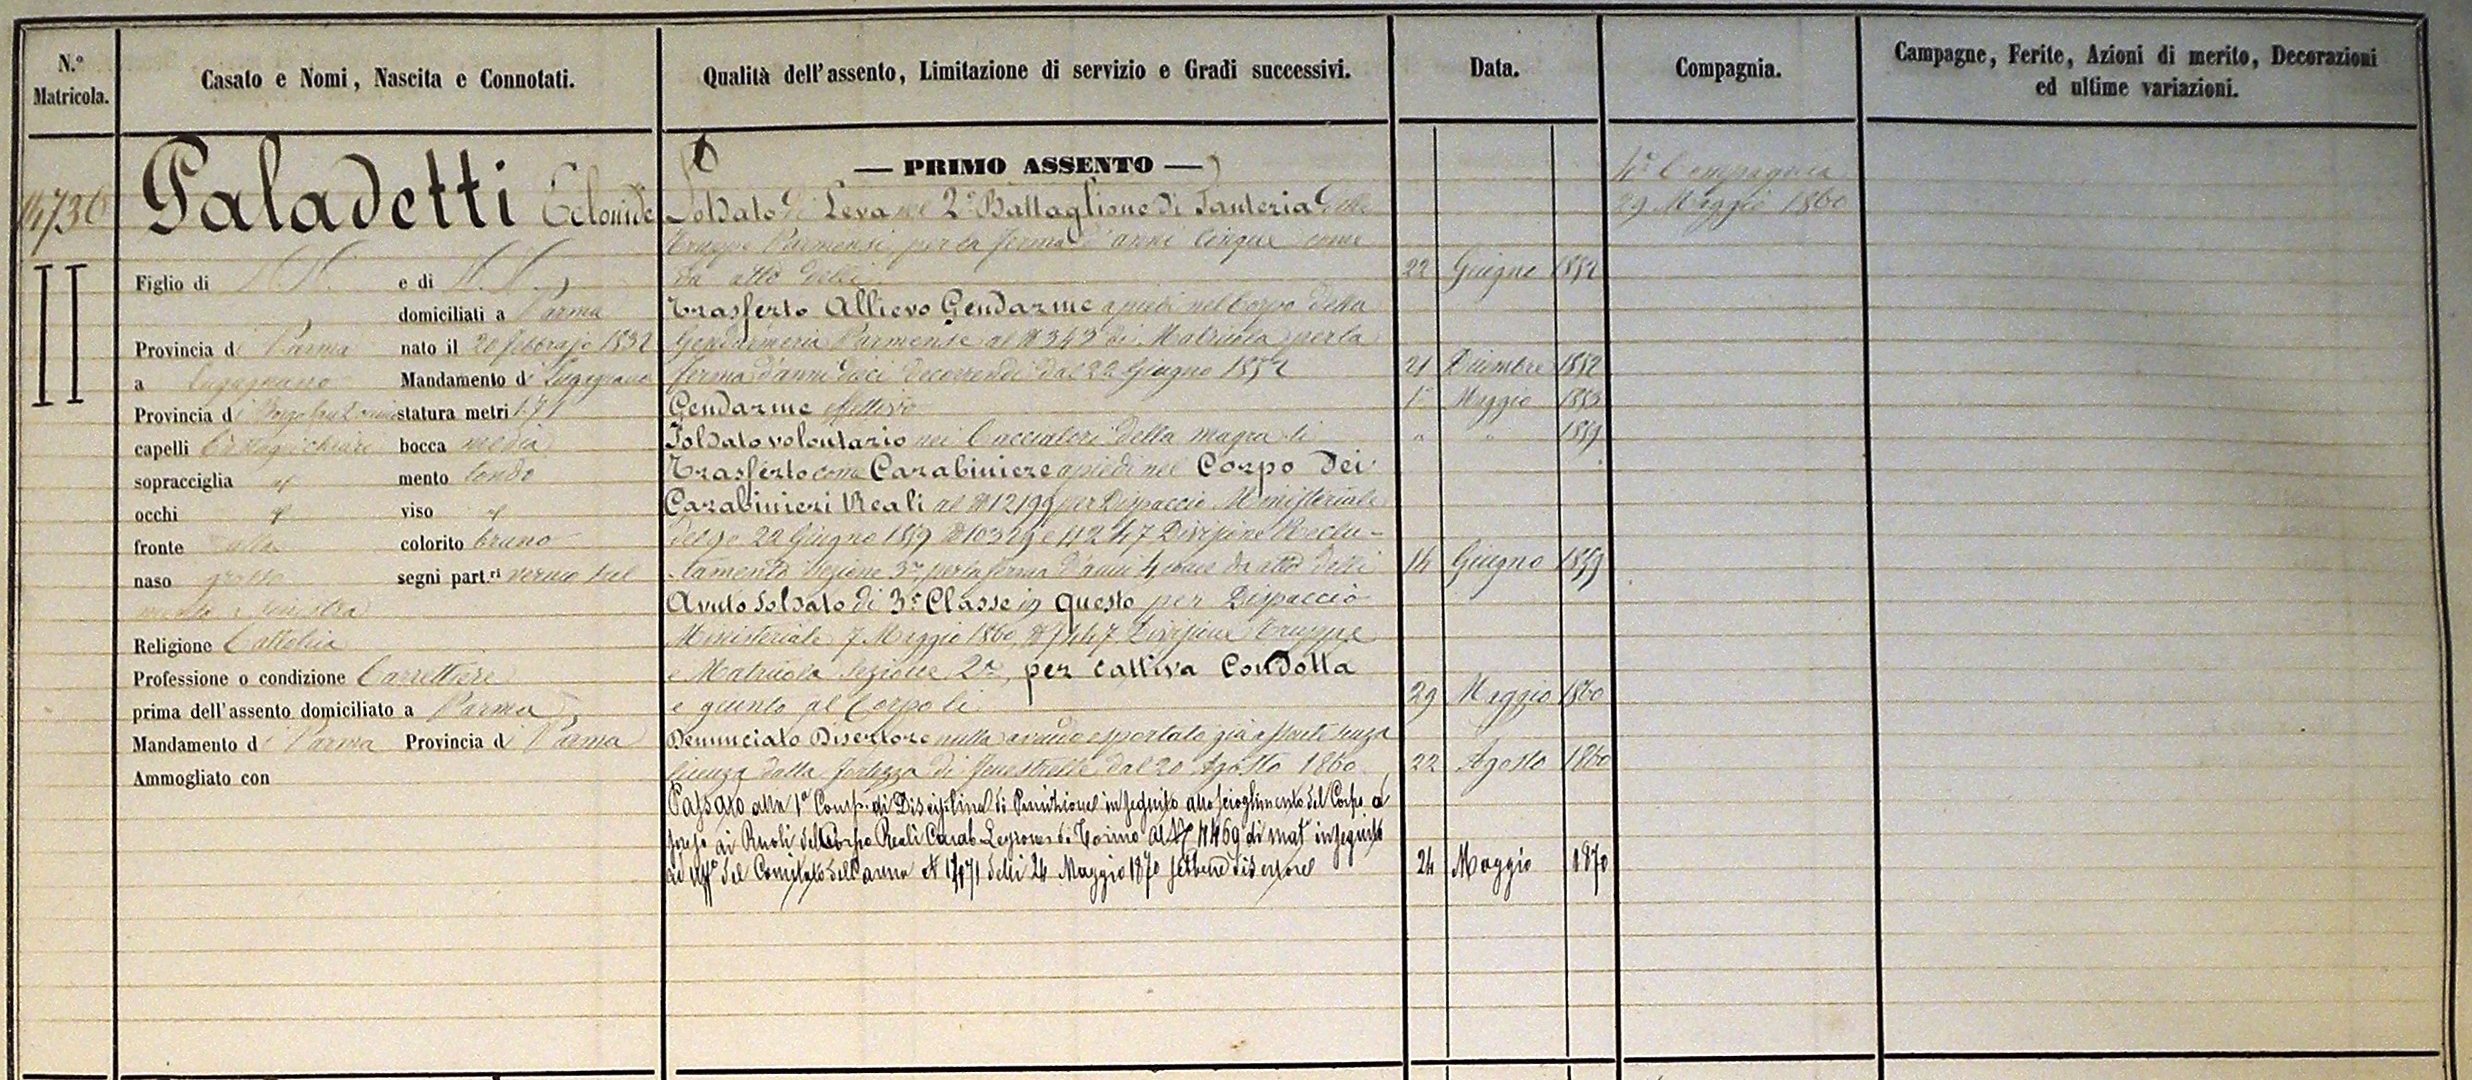 N.º Matricola.
Casato e Nomi, Nascita e Connotati.
Qualità dell'assento, Limitazione di servizio e Gradi successivi.
Data.
Compagnia.
Campagne, Ferite, Azioni di merito, Decorazioni
ed ultime variazioni.
14736
II
Paladetti
Figlio di N. N. e di N. N.
domiciliati a Parma
Provincia di Parma nato il 20 febbrajo 1832
a Lugagnano Mandamento di Lugagnano
Provincia di statura metri 1.71
capelli bocca media
sopracciglia id mento tondo
occhi id viso id
fronte alta colorito bruno
naso grosso segni part.ri sul
sinistra
Religione Cattolica
Professione o condizione Carrettiere
prima dell'assento domiciliato a Parma
Mandamento di Parma Provincia di Parma
Ammogliato con
— PRIMO ASSENTO —
Soldato di Leva nel 2º Battaglione di Fanteria delle
Truppe Parmensi per la ferma d'anni cinque come
da atto delli 22 Giugno 1852
Trasferto Allievo Gendarme a piedi nel Corpo della
Gendarmeria Parmense al Nº 343 di Matricola per la
ferma d'anni dieci decorrendi dal 22 Giugno 1852 21 Dicembre 1852
Gendarme effettivo 1º Maggio 1853
Soldato volontario nei Cacciatori della Magra li " " 1859
Trasferto come Carabiniere a piedi nel Corpo dei
Carabinieri Reali al Nº 12199 per Dispaccio Ministeriale
del 9 e 22 Giugno 1859 Nº 10329 e 11247 Divisione Reclu-
tamento Sezione 3ª per la ferma d'anni 4, come da atto delli 14 Giugno 1859
Avuto Soldato di 3ª Classe in questo per Dispaccio
Ministeriale 7 Maggio 1860 Nº 7447 Divisione Truppe
e Matricola Sezione 2ª, per cattiva Condotta
e giunto al Corpo li 29 Maggio 1860
Denunciato Disertore nulla avendo esportato già assente senza
licenza dalla fortezza di Fenestrelle dal 20 Agosto 1860 22 Agosto 1860
Passato alla 1ª Comp. di Disciplina di Punizione in seguito allo scioglimento del Corpo
ai Ruoli del Corpo Reali Carab. Legione di Torino al Nº 11469 di mat. in seguito
del Comitato dell'arma Nº delli 24 Maggio 1870 sebbene disertore 24 Maggio 1870
4ª Compagnia
29 Maggio 1860